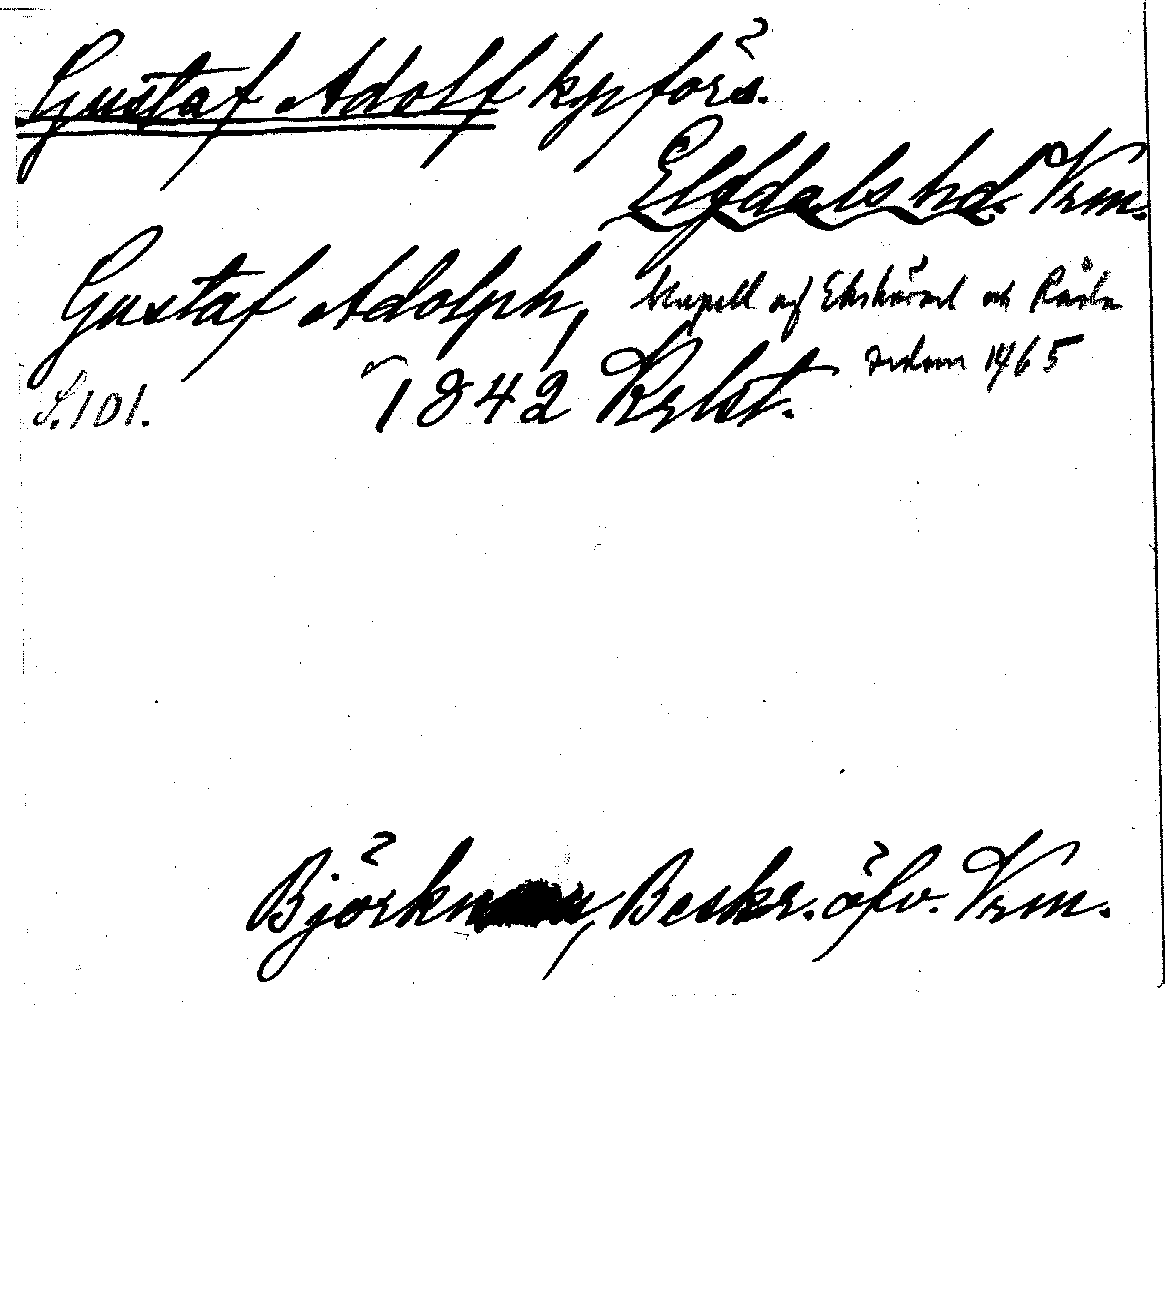 Gustaf Adolf kpförs.
Elfdals hd. Vrm.
Gustaf Adolph,
Kapell af Ekshärad och Råda sedan 1965
1842 Krlst.
S. 101.
Björkman, Beskr. öfv. Vrm.